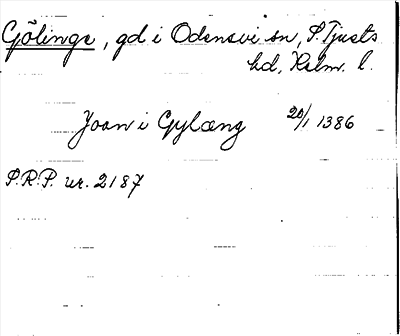 Gölinge, gd i Odensvi sn, S. Tjusts
hd, Kalm. l.
Joan i Gylæng 20/1 1386
P.R.P. nr. 2187